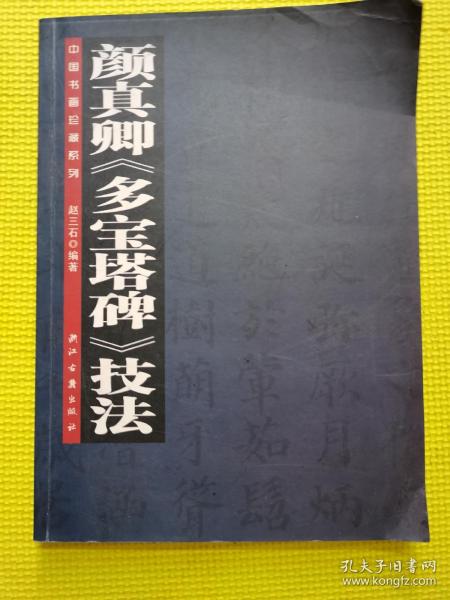 颜真卿《多宝塔碑》技法
中国书画珍藏系列
赵三石◎编著
浙江古籍出版社
樹萌牙聳
茹髭
月炳
孔夫子旧书网
www.kongfz.com